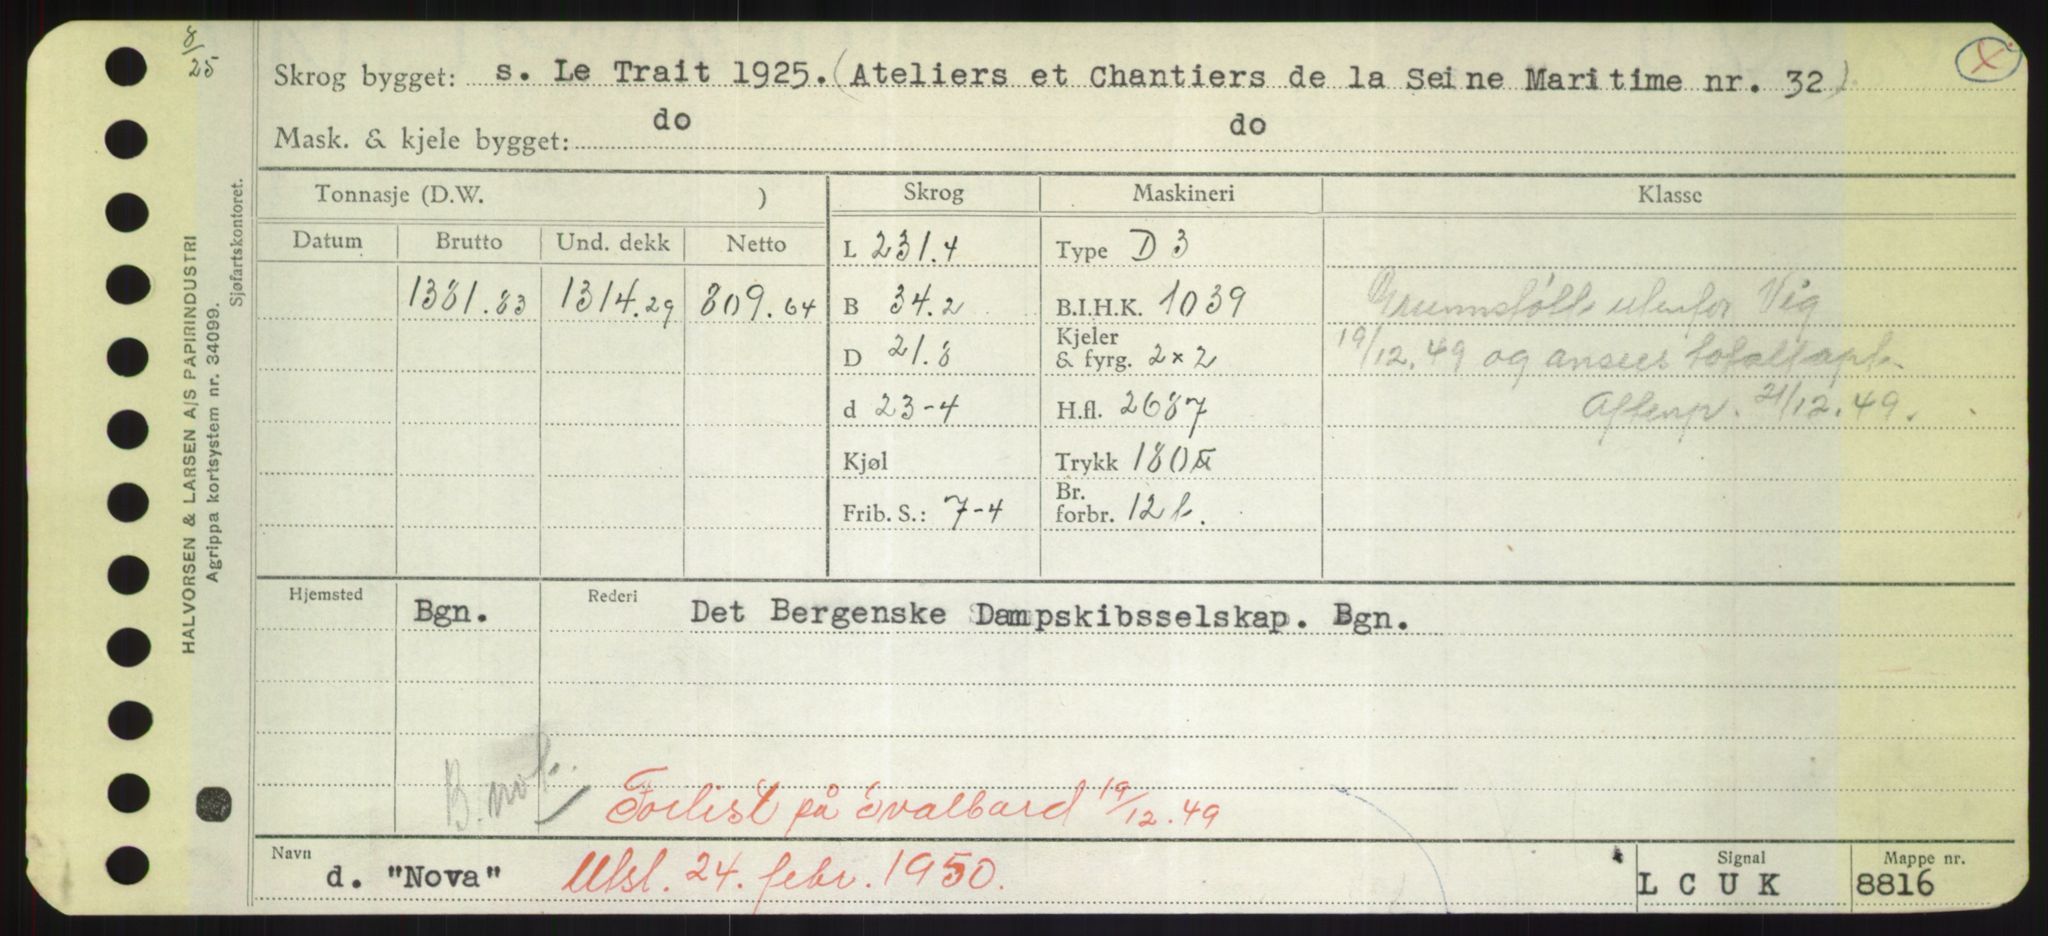 8/25
Skrog bygget: s. Le Trait 1925. (Ateliers et Chantiers de la Seine Maritime nr. 32)
X
do do
Mask. & kjele bygget:
HALVORSEN & LARSEN A/S PAPIRINDUSTRI
Agrippa kortsystem nr. 34099.
Sjøfartskontoret.
Tonnasje (D.W. ) Skrog Maskineri Klasse
Datum Brutto Und. dekk Netto
L 231.4 Type D 3
1381.83 1314.29 809.64 B 34.2 B.I.H.K. 1039 Grunnstøtt utenfor Vig
D 21.8 Kjeler & fyrg. 2 x 2 19/12.49 og ansees totaltapt.
d 23-4 H.fl. 2687 Aftenp. 21/12.49.
Kjøl Trykk 180 lb
Frib. S.: 7-4 Br. forbr. 12 t.
Hjemsted Bgn. Rederi Det Bergenske Dampskibsselskap. Bgn.
B. not.
Forlist på Svalbard 19/12.49
Navn d. "Nova" Utsl. 24. febr. 1950.
Signal LCUK
Mappe nr. 8816